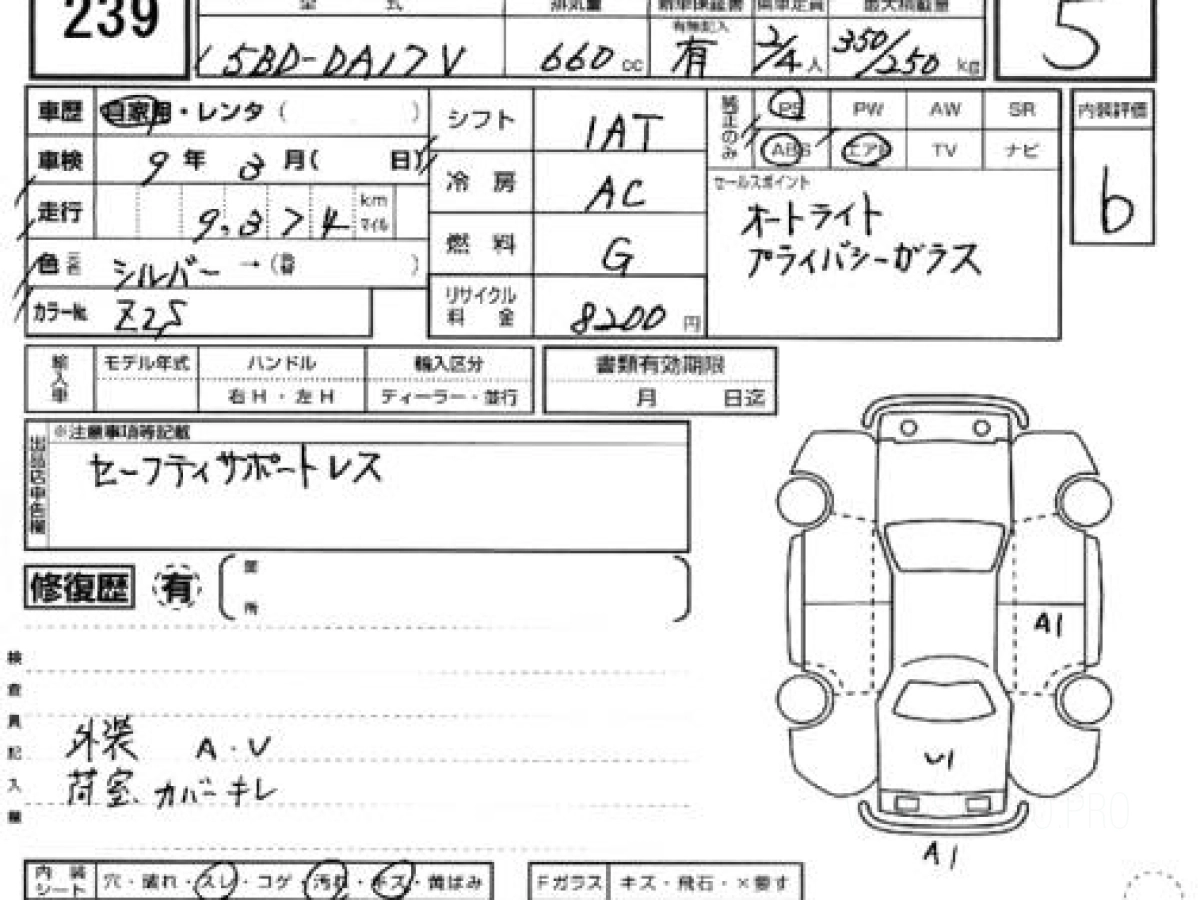 239
型 式 排気量 新車保証書 乗車定員 最大積載量
有無記入
5BD-DA17V 660 cc 有 2/4 人 350/250 kg
5
車歴 自家用・レンタ ( )
シフト 1AT
純正のみ PS PW AW SR
ABS エアB TV ナビ
内装評価
b
車検 9年 3月( 日)
冷房 AC
セールスポイント
オートライト
プライバシーガラス
走行 9,374 km マイル
燃料 G
色 元色 シルバー →( )
カラー№ Z2S
リサイクル料金 8200 円
輸入車 モデル年式 ハンドル 輸入区分 書類有効期限
右H・左H ディーラー・並行 月 日迄
出品店申告欄
※注意事項等記載
セーフティサポートレス
修復歴 有 ( 箇所 )
検査員記入欄
外装 A・V
荷室 カバーキレ
A1
U1
A1
内装シート 穴・破れ・スレ・コゲ・汚れ・キズ・黄ばみ
Fガラス キズ・飛石・×要す